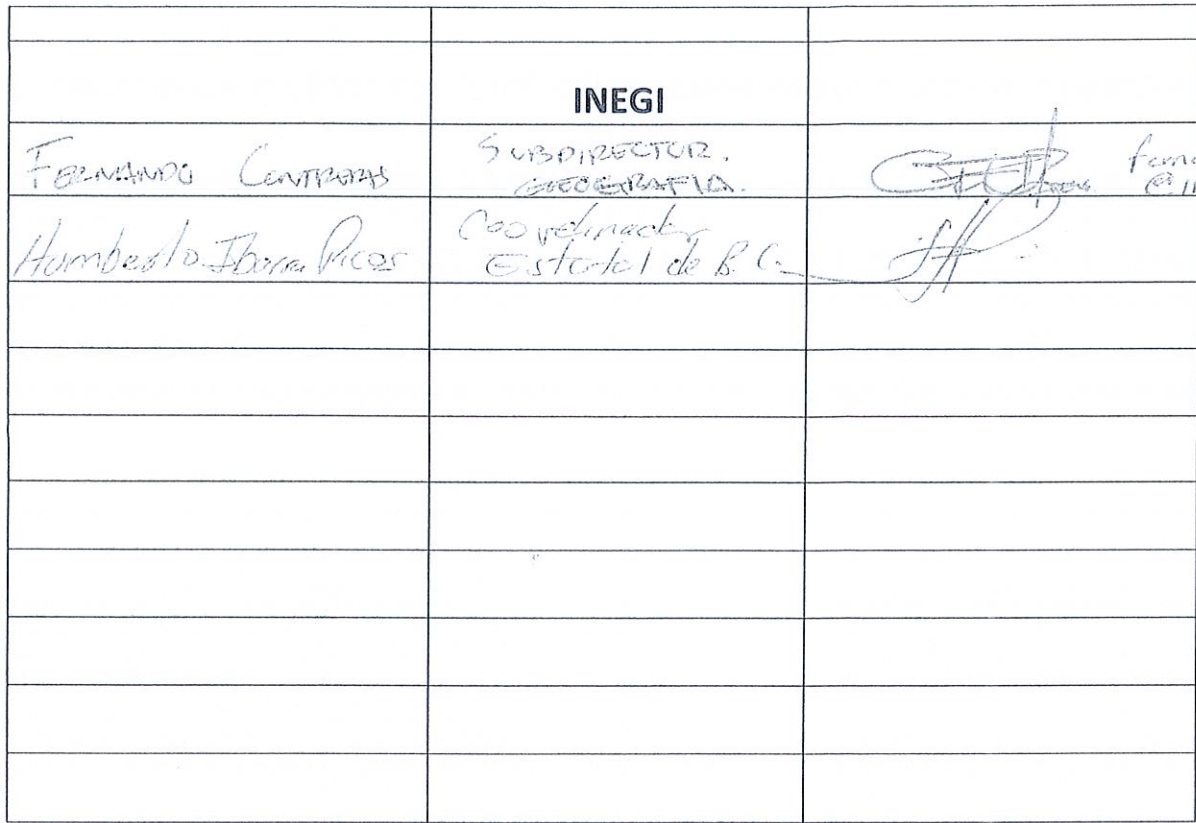 INEGI
FERNANDO CONTRERAS
SUBDIRECTOR.
GEOGRAFIA.
Humberto Ibarra Picos
Coordinador
Estatal de B. C.